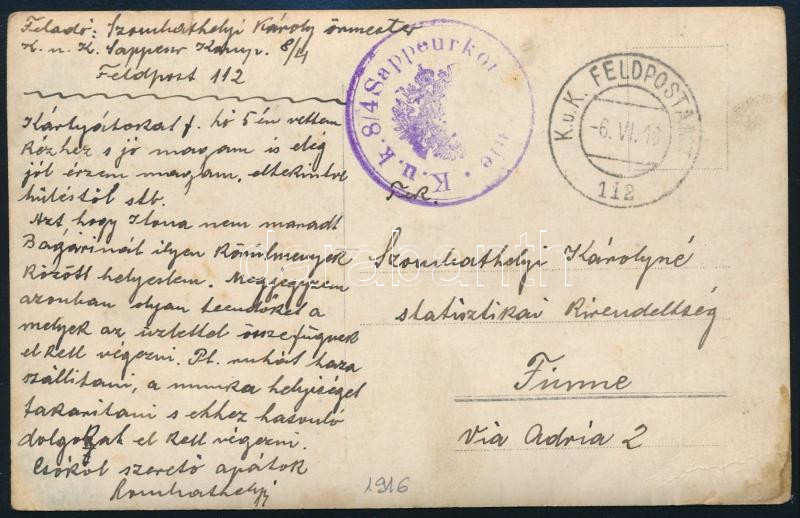 Feladó: Szombathelyi Károly őrmester
K. u. K. Sappeur Komp. 8/4
Feldpost 112
Kártyátokat f. hó 5 én vettem
kézhez s jó magam is elég
jól érzem magam, eltekintve
hűléstől stb.
Azt hogy Ilona nem maradt
Bagárinál ilyen körülmények
között helyeslem. Megjegyzem
azonban olyan teendőket a
melyek az üzlettel összefügnek
el kell végezni. Pl. ruhát haza
szállitani, a munka helyiséget
takaritani s ehhez hasonló
dolgokat el kell végezni.
Csókol szerető apátok
Szombathelyi
K.u.k. 8/4 Sappeurkom nie
K.u.K. FELDPOSTAMT
-6.VI.16
112
Szombathelyi Károlyné
statisztikai kirendeltség
Fiume
via Adria 2
1916
darabanth